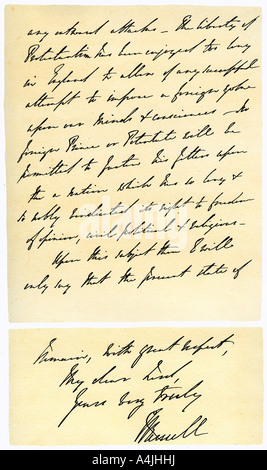 any external attacks - The liberty of
Protestantism has been enjoyed too long
in England to allow of any successful
attempt to impose a foreign yoke
upon our minds & consciences - No
foreign Prince or Potentate will be
permitted to fasten his fetters upon
a nation which has so long &
so nobly vindicated its right to freedom
of opinion, civil, political & religious -
Upon this subject then I will
only say that the present state of
Remain, with great respect,
My dear Lord,
Yours very truly
J Russell
alamy
A4JHHJ